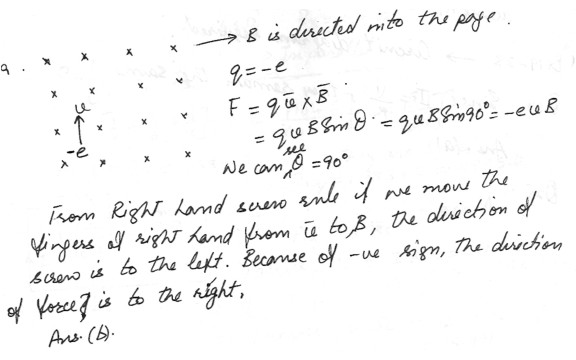 9. x x x x → B is directed into the page.
x x x x q = -e
v F = q v̄ × B̄
x ↑ x x x = q v B Sin θ = q v B Sin 90° = -e v B
-e
x x x x We can see θ = 90°
From Right hand screw rule if we move the
fingers of right hand from v̄ to B, the direction of
screw is to the left. Because of -ve sign, the direction
of force is to the right.
Ans. (b).